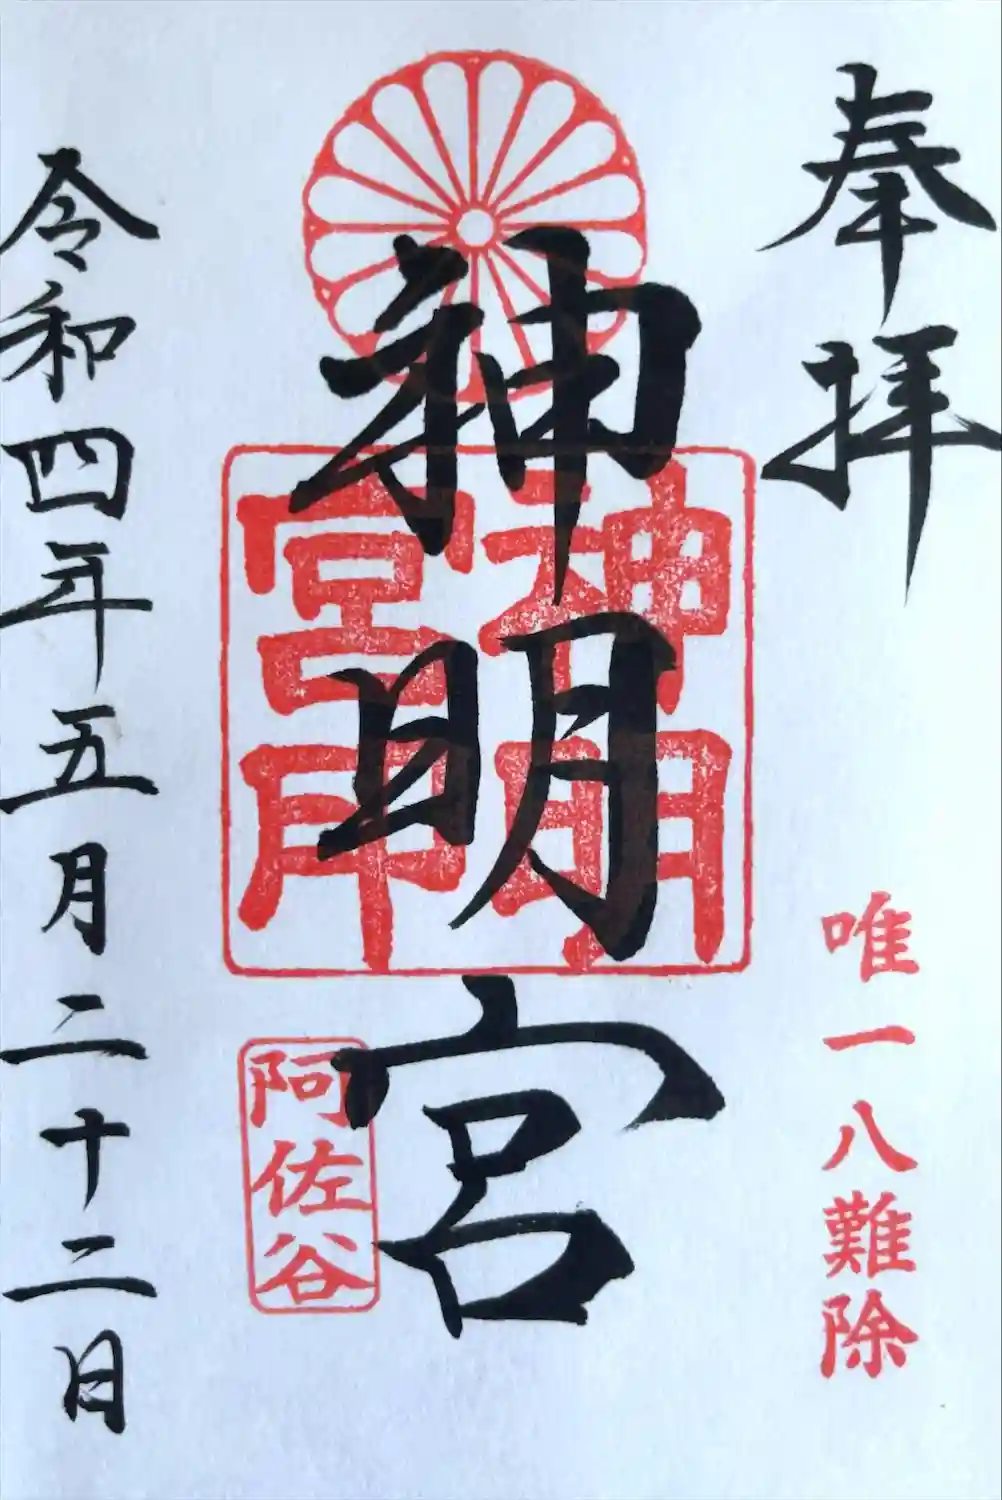 奉拝
唯一八難除
神明宮
神明
宮印
阿佐谷
令和四年五月二十二日